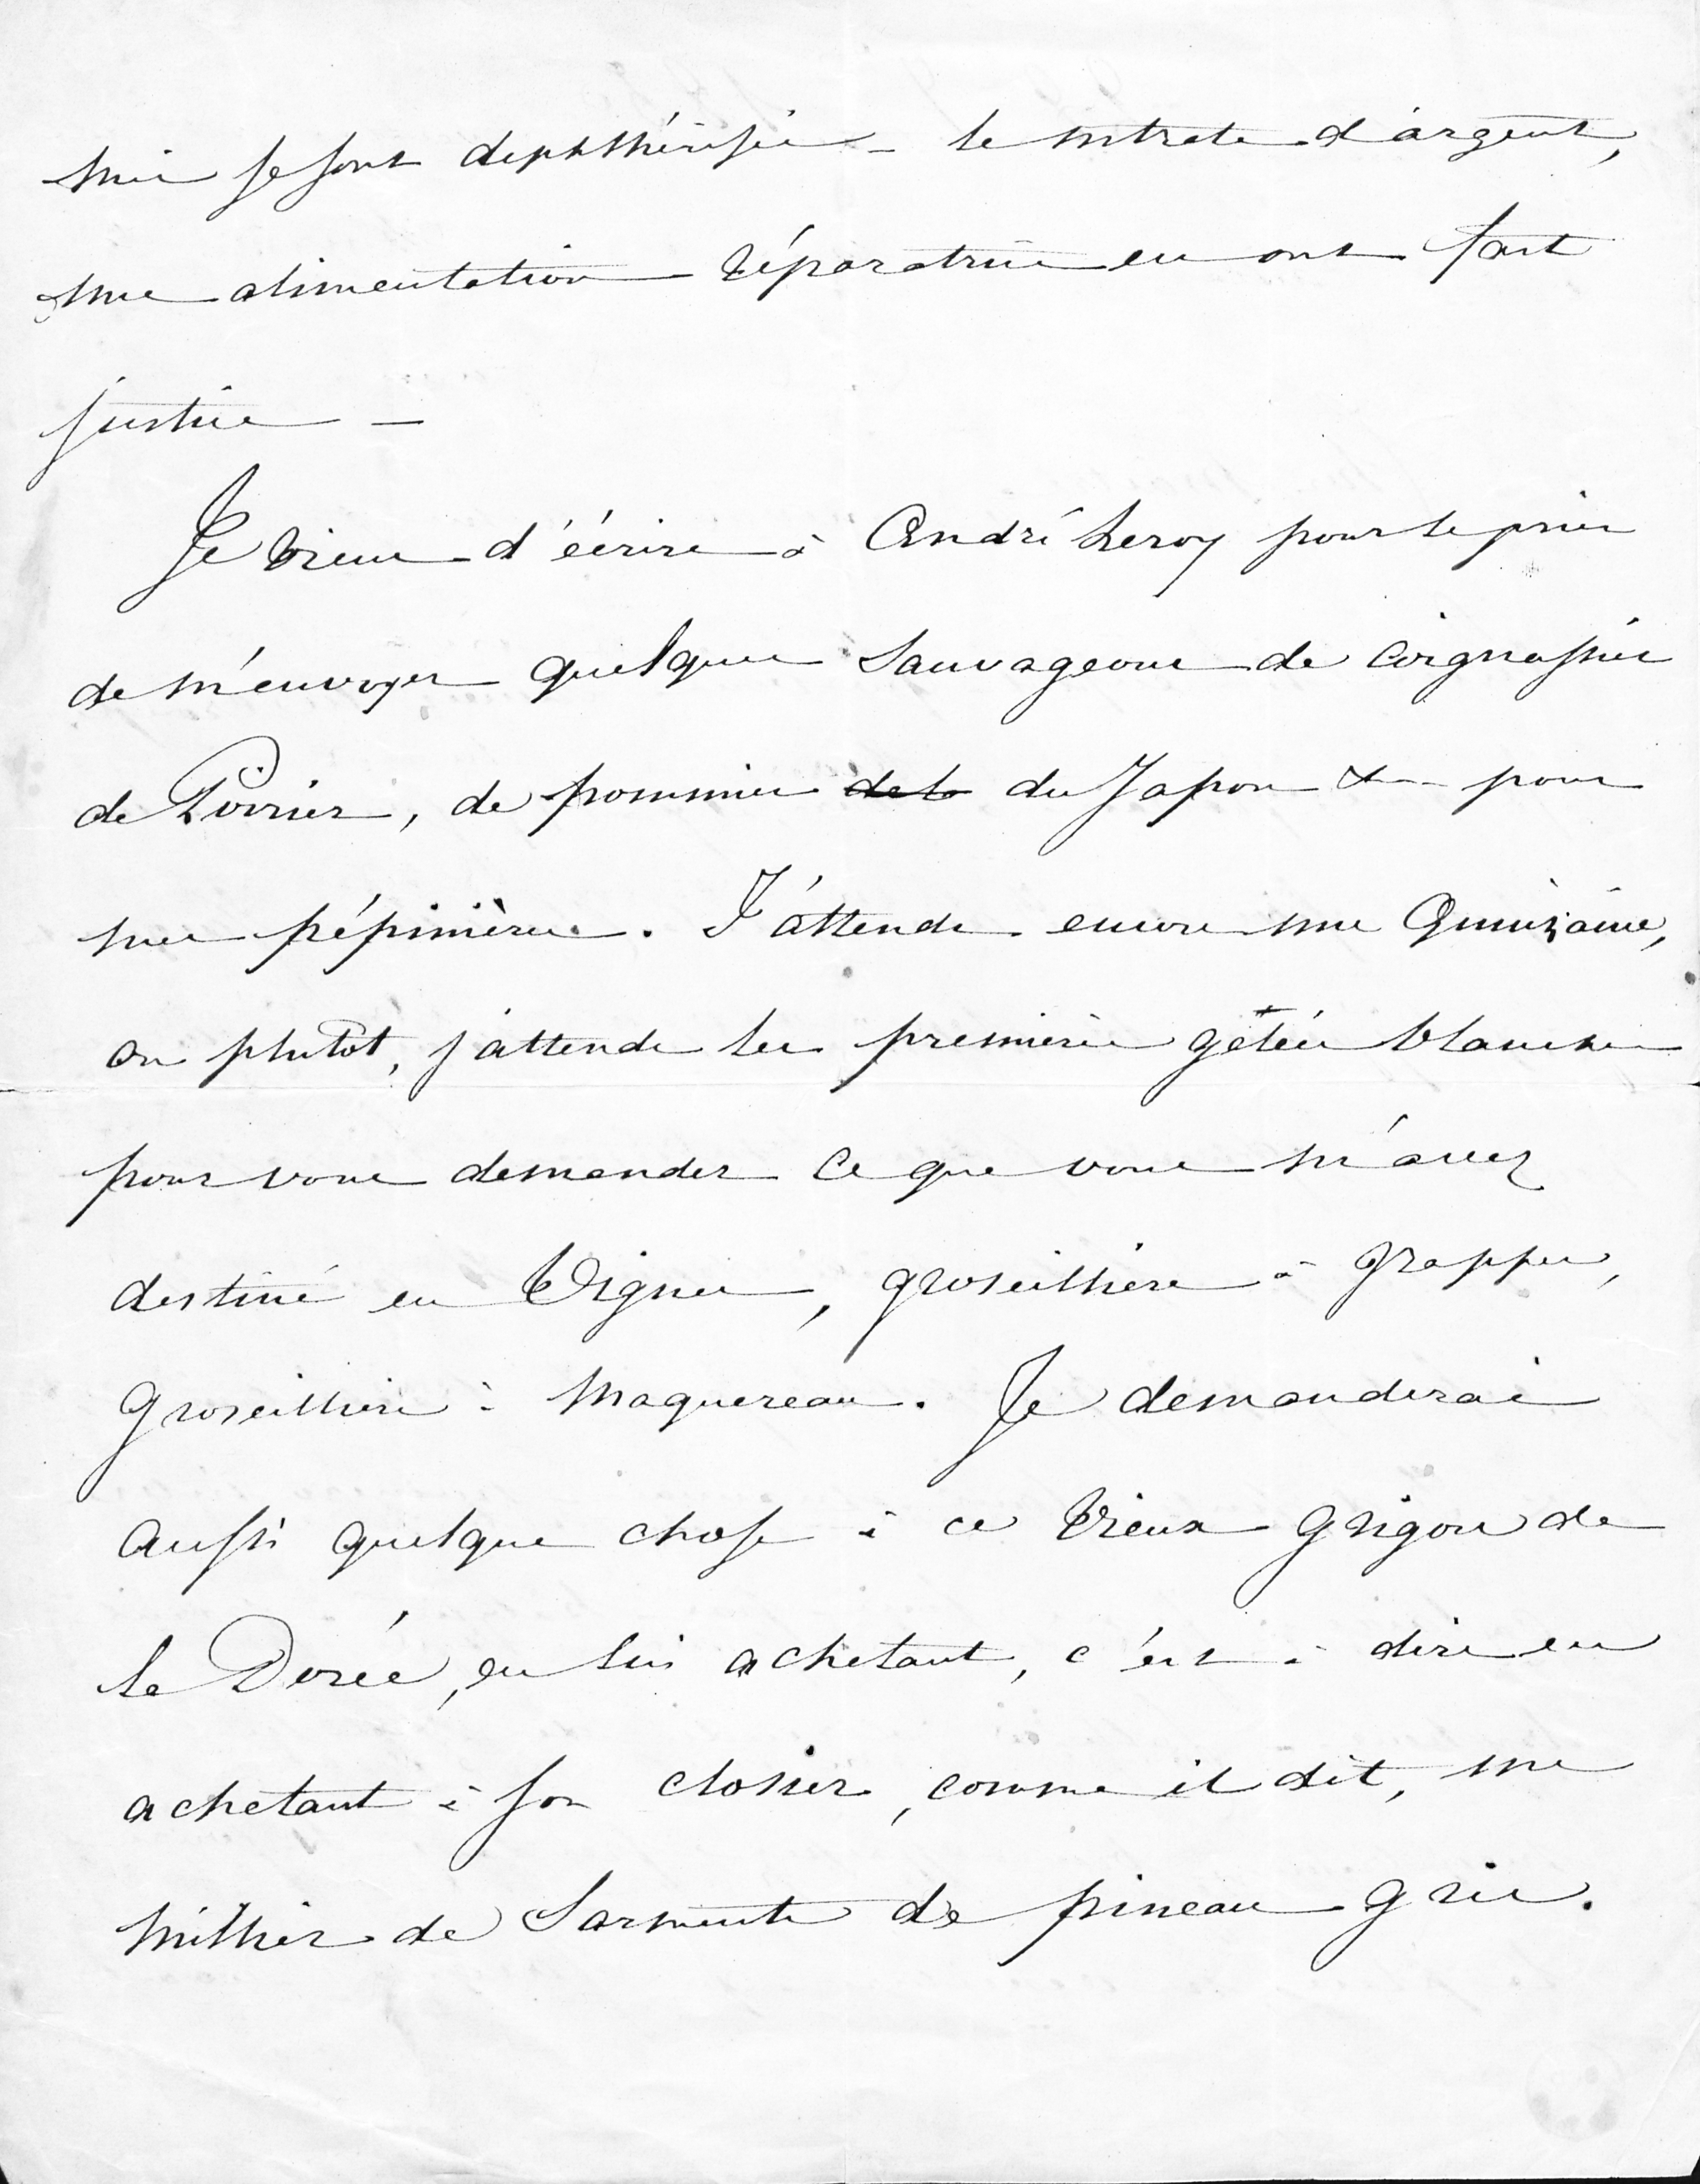 mis se sont diphthérisés – le nitrate d'argent,
une alimentation réparatrice en ont fait
justice –
Je viens d'écrire à André Leroy pour le prier
de m'envoyer quelques sauvageons de coignassier
de Poirier, de pommier de la du Japon &– pour
mes pépinières. J'attends encore une Quinzaine,
ou plutôt, j'attends les premières gelées blanches
pour vous demander ce que vous m'avez
destiné en Vignes, groseilliers à grappes,
groseilliers à maquereau. Je demanderai
aussi quelque chose à ce vieux grigou de
le Dorée, en lui achetant, c'est à dire en
achetant à son closier, comme il dit, un
millier de Sarments de pineau gris.